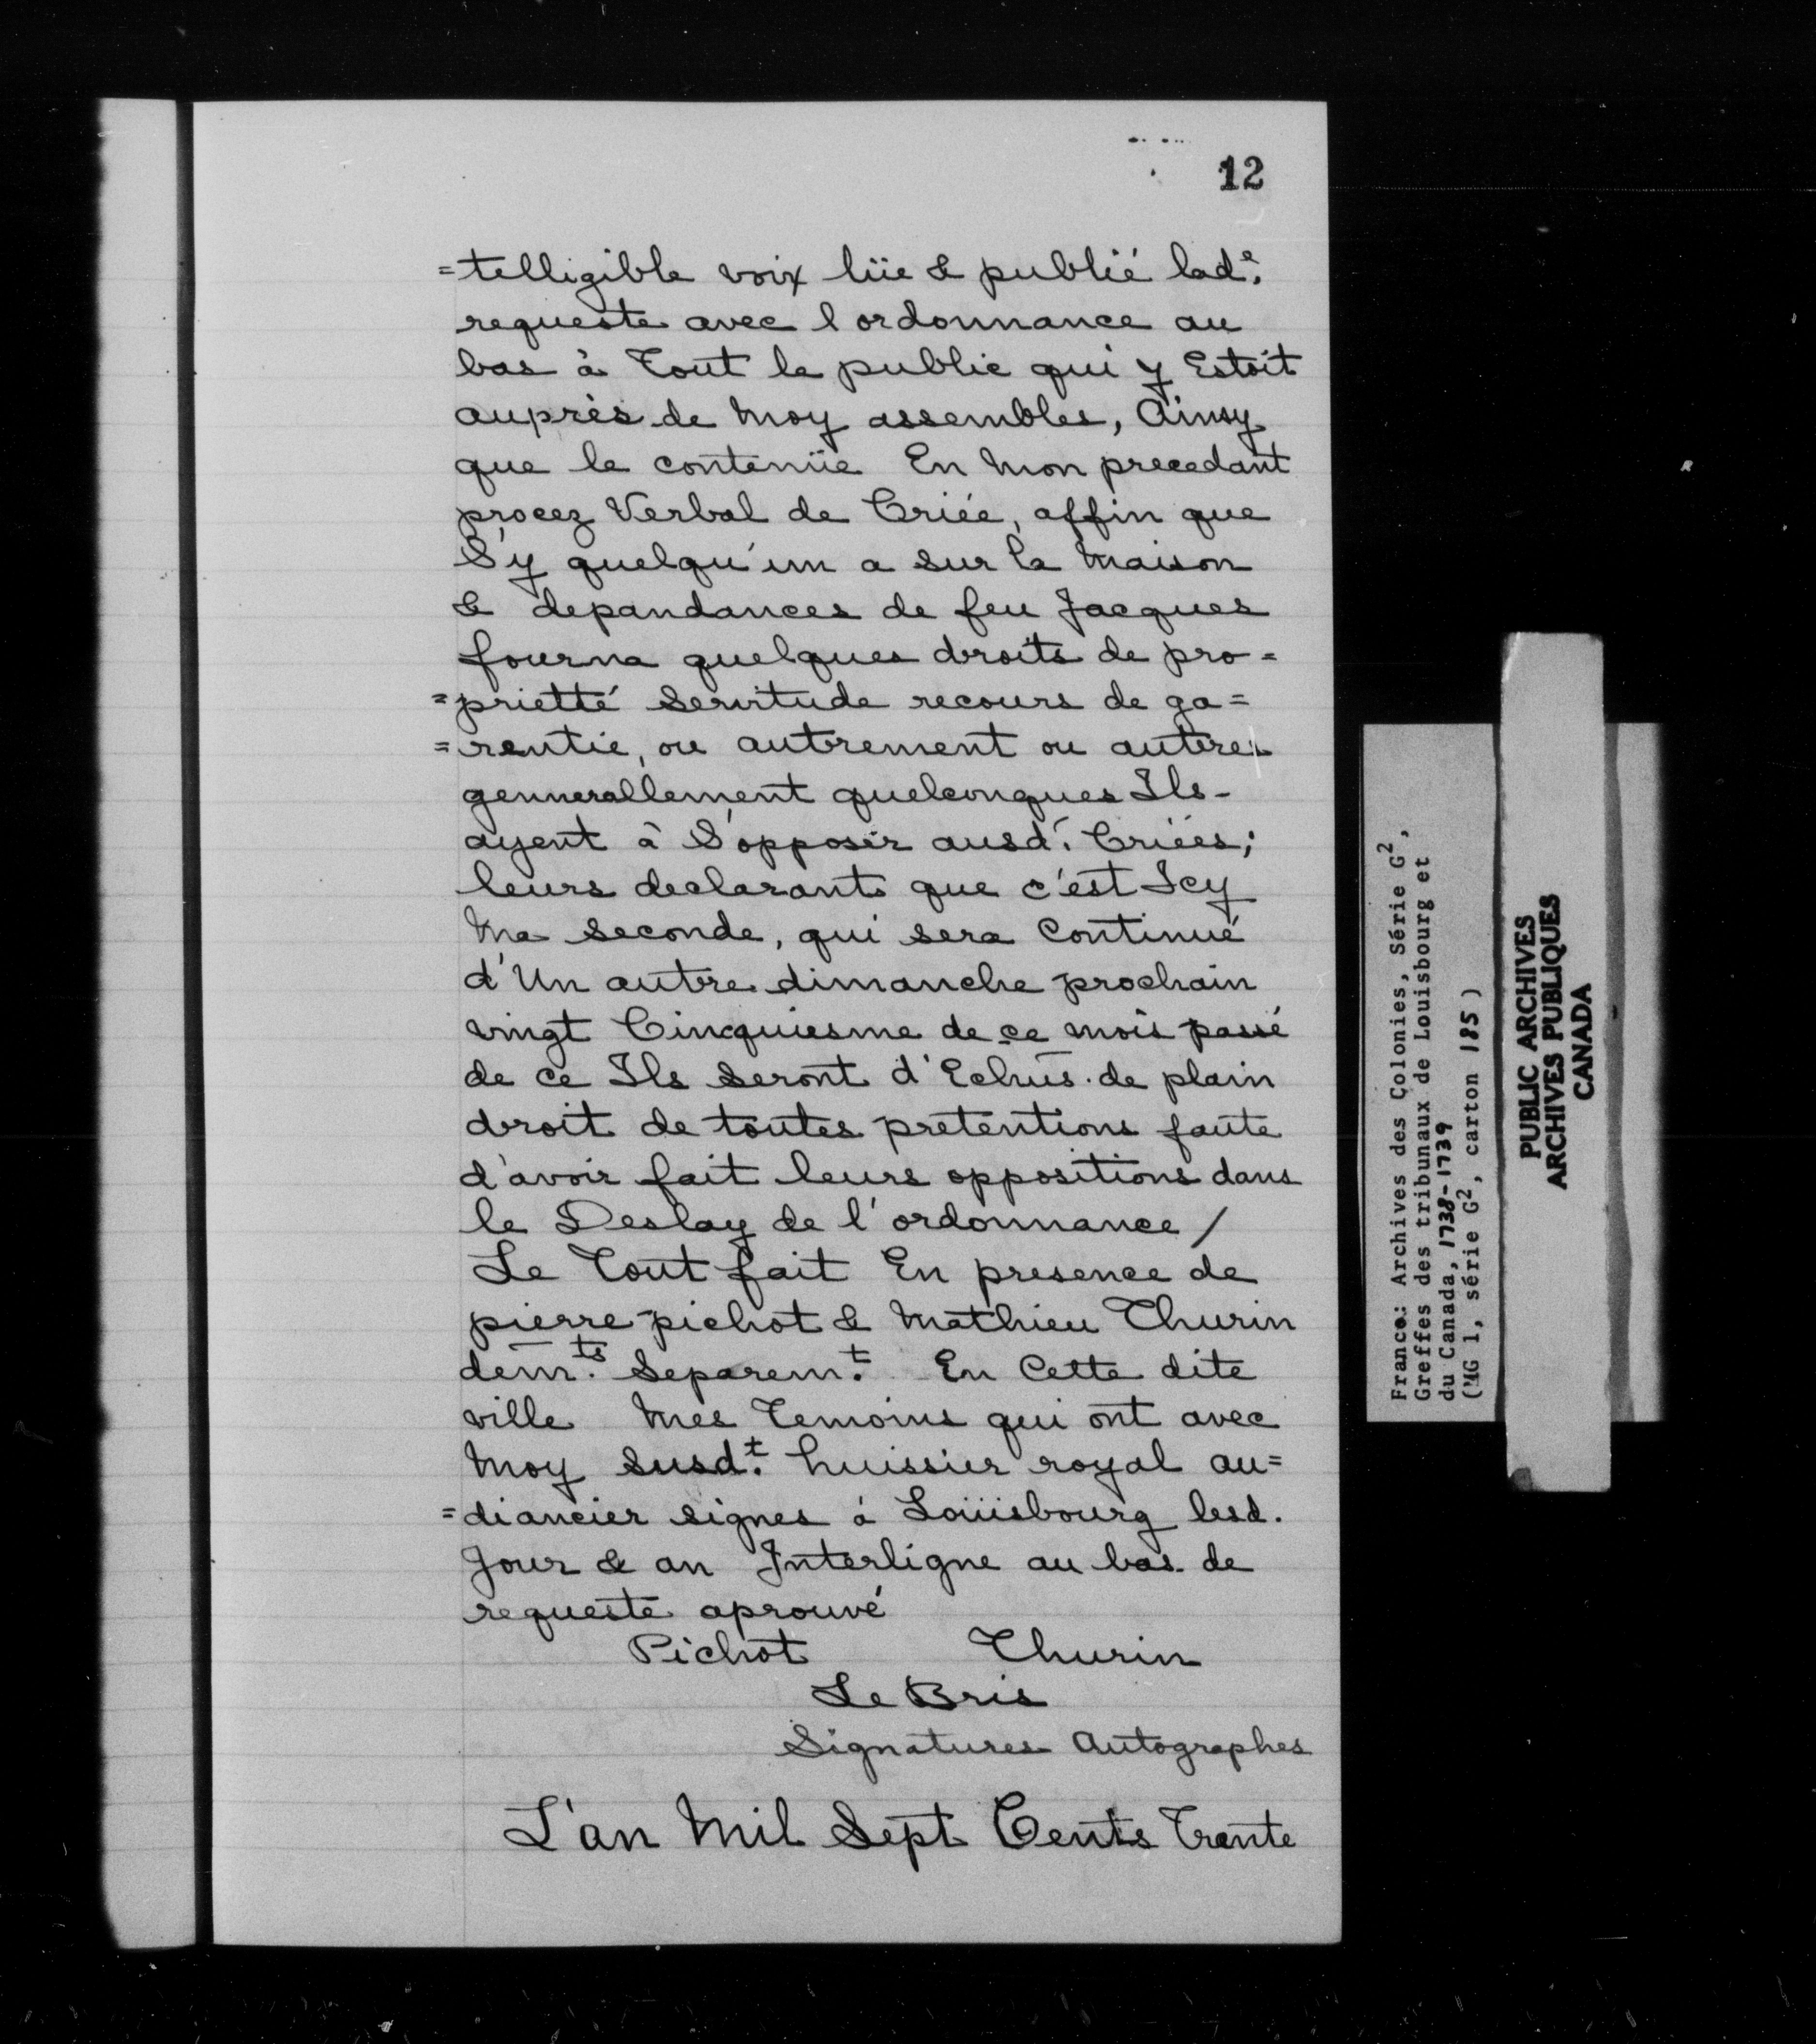 12
=telligible voix lüe & publié lad.e
requeste avec l ordonnance au
bas à Tout le public qui y Estoit
auprès de Moy assembles, Ainsy
que le contenüe En Mon precedant
procez Verbal de Criée, affin que
S'y quelqu'un a sur la Maison
& depandances de feu Jacques
fourna quelques droits de pro=
=prietté Servitude recours de ga=
=rentie, ou autrement ou autres
gennerallement quelconques Ils-
ayent à S'opposer ausd. Criées;
leurs declarants que c'est Icy
Ma seconde, qui sera Continué
d'Un autre dimanche prochain
vingt Cinquiesme de ce mois passé
de ce Ils Seront d'Echus de plain
droit de toutes pretentions faute
d'avoir fait leurs oppositions dans
le Deslay de l'ordonnance /
Le Tout fait En presence de
pierre pichot & Mathieu Thurin
dem.ts Separem.t En Cette dite
ville Mes Temoins qui ont avec
Moy Susd.t huissier royal au=
=diancier signes à Loüisbourg lesd.
Jour & an Interligne au bas de
requeste aprouvé
Pichot Thurin
Le Bris
Signatures Autographes
L'an Mil Sept Cents Trente
France: Archives des Colonies, Série G2,
Greffes des tribunaux de Louisbourg et
du Canada, 1738-1739
(MG 1, série G2, carton 185)
PUBLIC ARCHIVES
ARCHIVES PUBLIQUES
CANADA